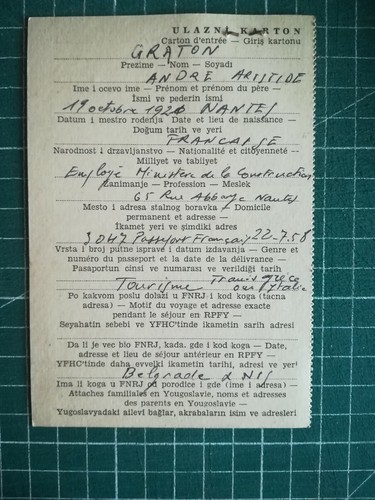 ULAZNI KARTON
Carton d'entrée — Giriş kartonu
GRATON
Prezime — Nom — Soyadi
ANDRE ARISTIDE
Ime i ocevo ime — Prénom et prénom du père —
İsmi ve pederin ismi
19 octobre 1920 NANTES
Datum i mestro rođenja Date et lieu de naissance —
Doğum tarih ve yeri
FRANCAISE
Narodnost i drzavljanstvo — Nationalité et citoyenneté —
Milliyet ve tabiiyet
Employé Ministère de la Construction
Zanimanje — Profession — Meslek
65 Rue Nantes
Mesto i adresa stalnog boravka — Domicile
permanent et adresse —
Ikamet yeri ve şimdiki adres
3047 Passeport Français 22-7-58
Vrsta i broj putne isprave i datum izdavanja — Genre et
numéro du passeport et la date de la délivrance —
Pasaportun cinsi ve numarası ve verildiği tarih
Tourisme Transit grèce
ou Italie
Po kakvom poslu dolazi u FNRJ i kod koga (tacna
adresa) — Motif du voyage et adresse exacte
pendant le séjour en RPFY —
Seyahatin sebebi ve YFHC'tinde ikametin sarih adresi
Da li je vec bio FNRJ, kada, gde i kod koga — Date,
adresse et lieu de séjour antérieur en RPFY —
YFHC'tinde daha evvelki ikametin tarihi, adresi ve yeri
Belgrade & NIS
Ima li koga u FNRJ od porodice i gde (ime i adresa) —
Attaches familiales en Yougoslavie, noms et adresses
des parents en Yougoslavie —
Yugoslavyadaki ailevi bağlar, akrabaların isim ve adresleri